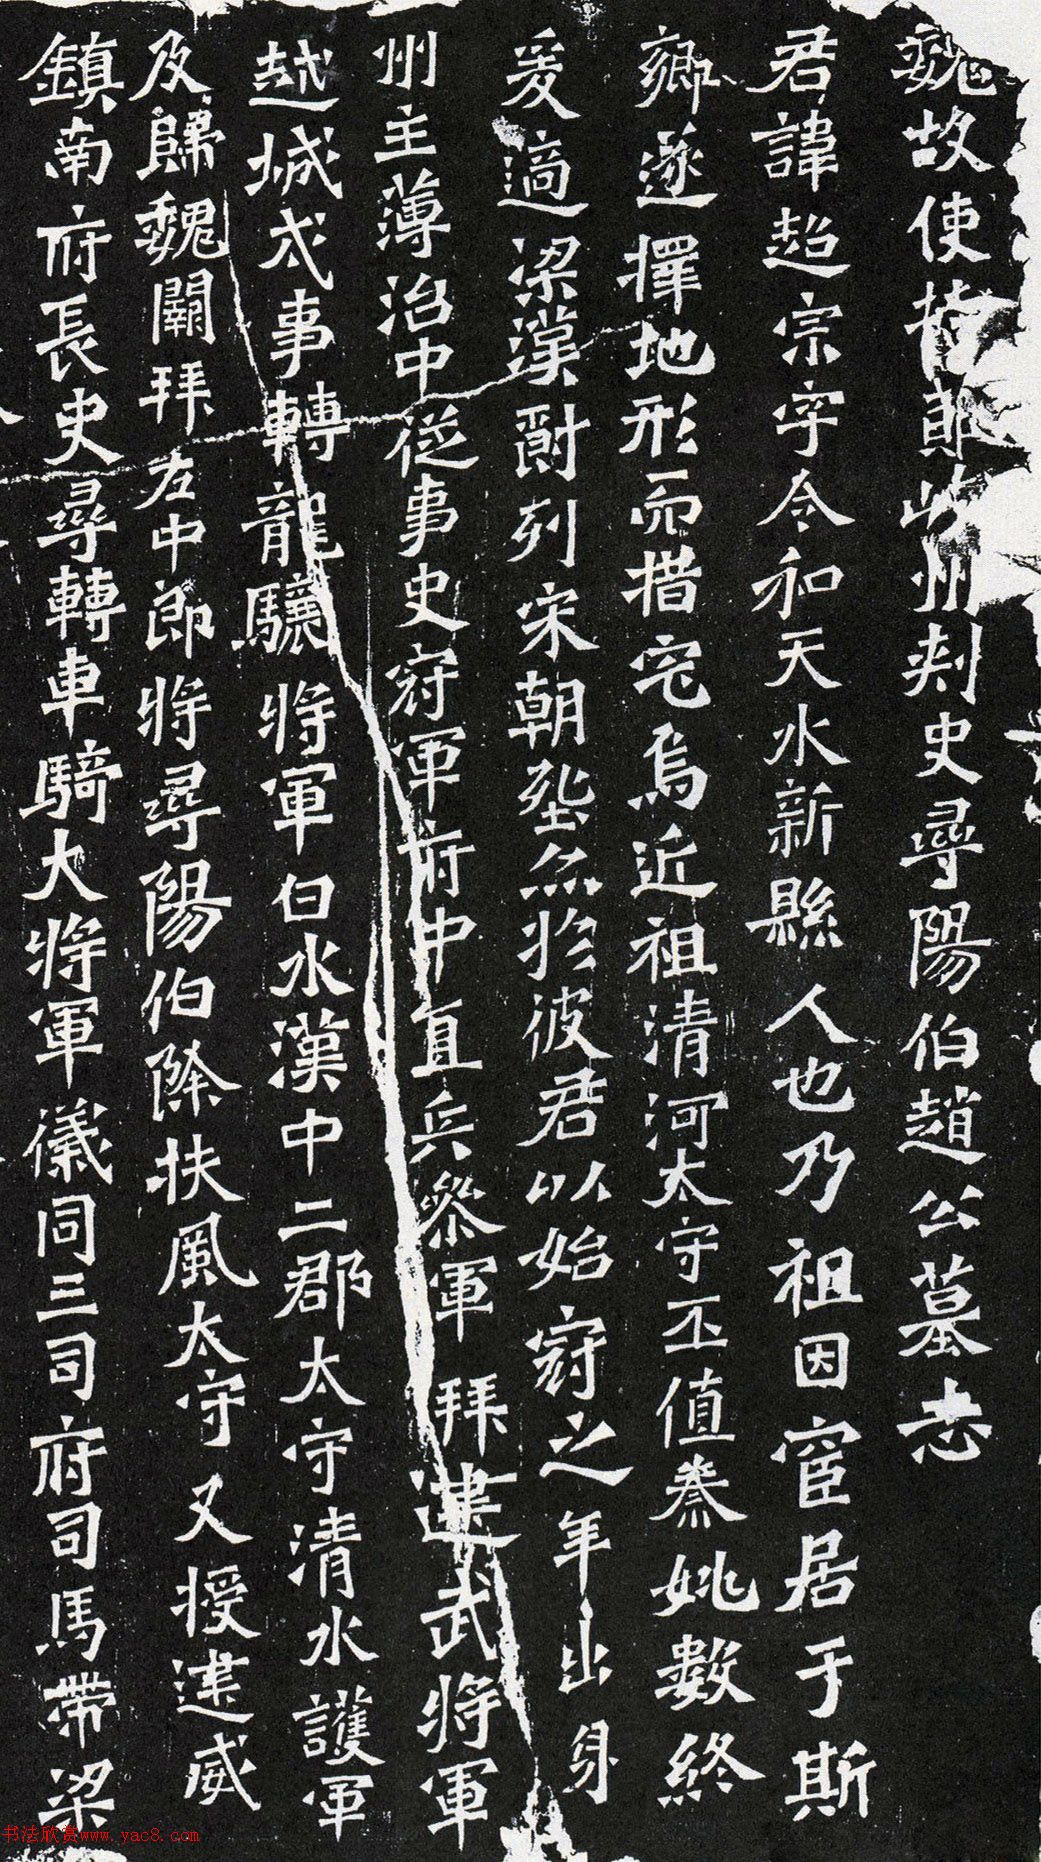 魏故使持節岐州刾史尋陽伯趙公墓志
君諱超宗字令和天水新縣人也乃祖因宦居于斯
鄉遂擇地形而措宅焉近祖清河太守丕值秦姚數終
爰適梁漢爵列宋朝聖亦於彼君以始冠之年出身
州主薄治中從事史冠軍府中直兵參軍拜建武將軍
越城戍事轉龍驤將軍白水漢中二郡太守清水護軍
及歸魏闕拜左中郎將尋陽伯除扶風太守又授建威
鎮南府長史尋轉車騎大將軍儀同三司府司馬帶梁
书法欣赏www.yac8.com